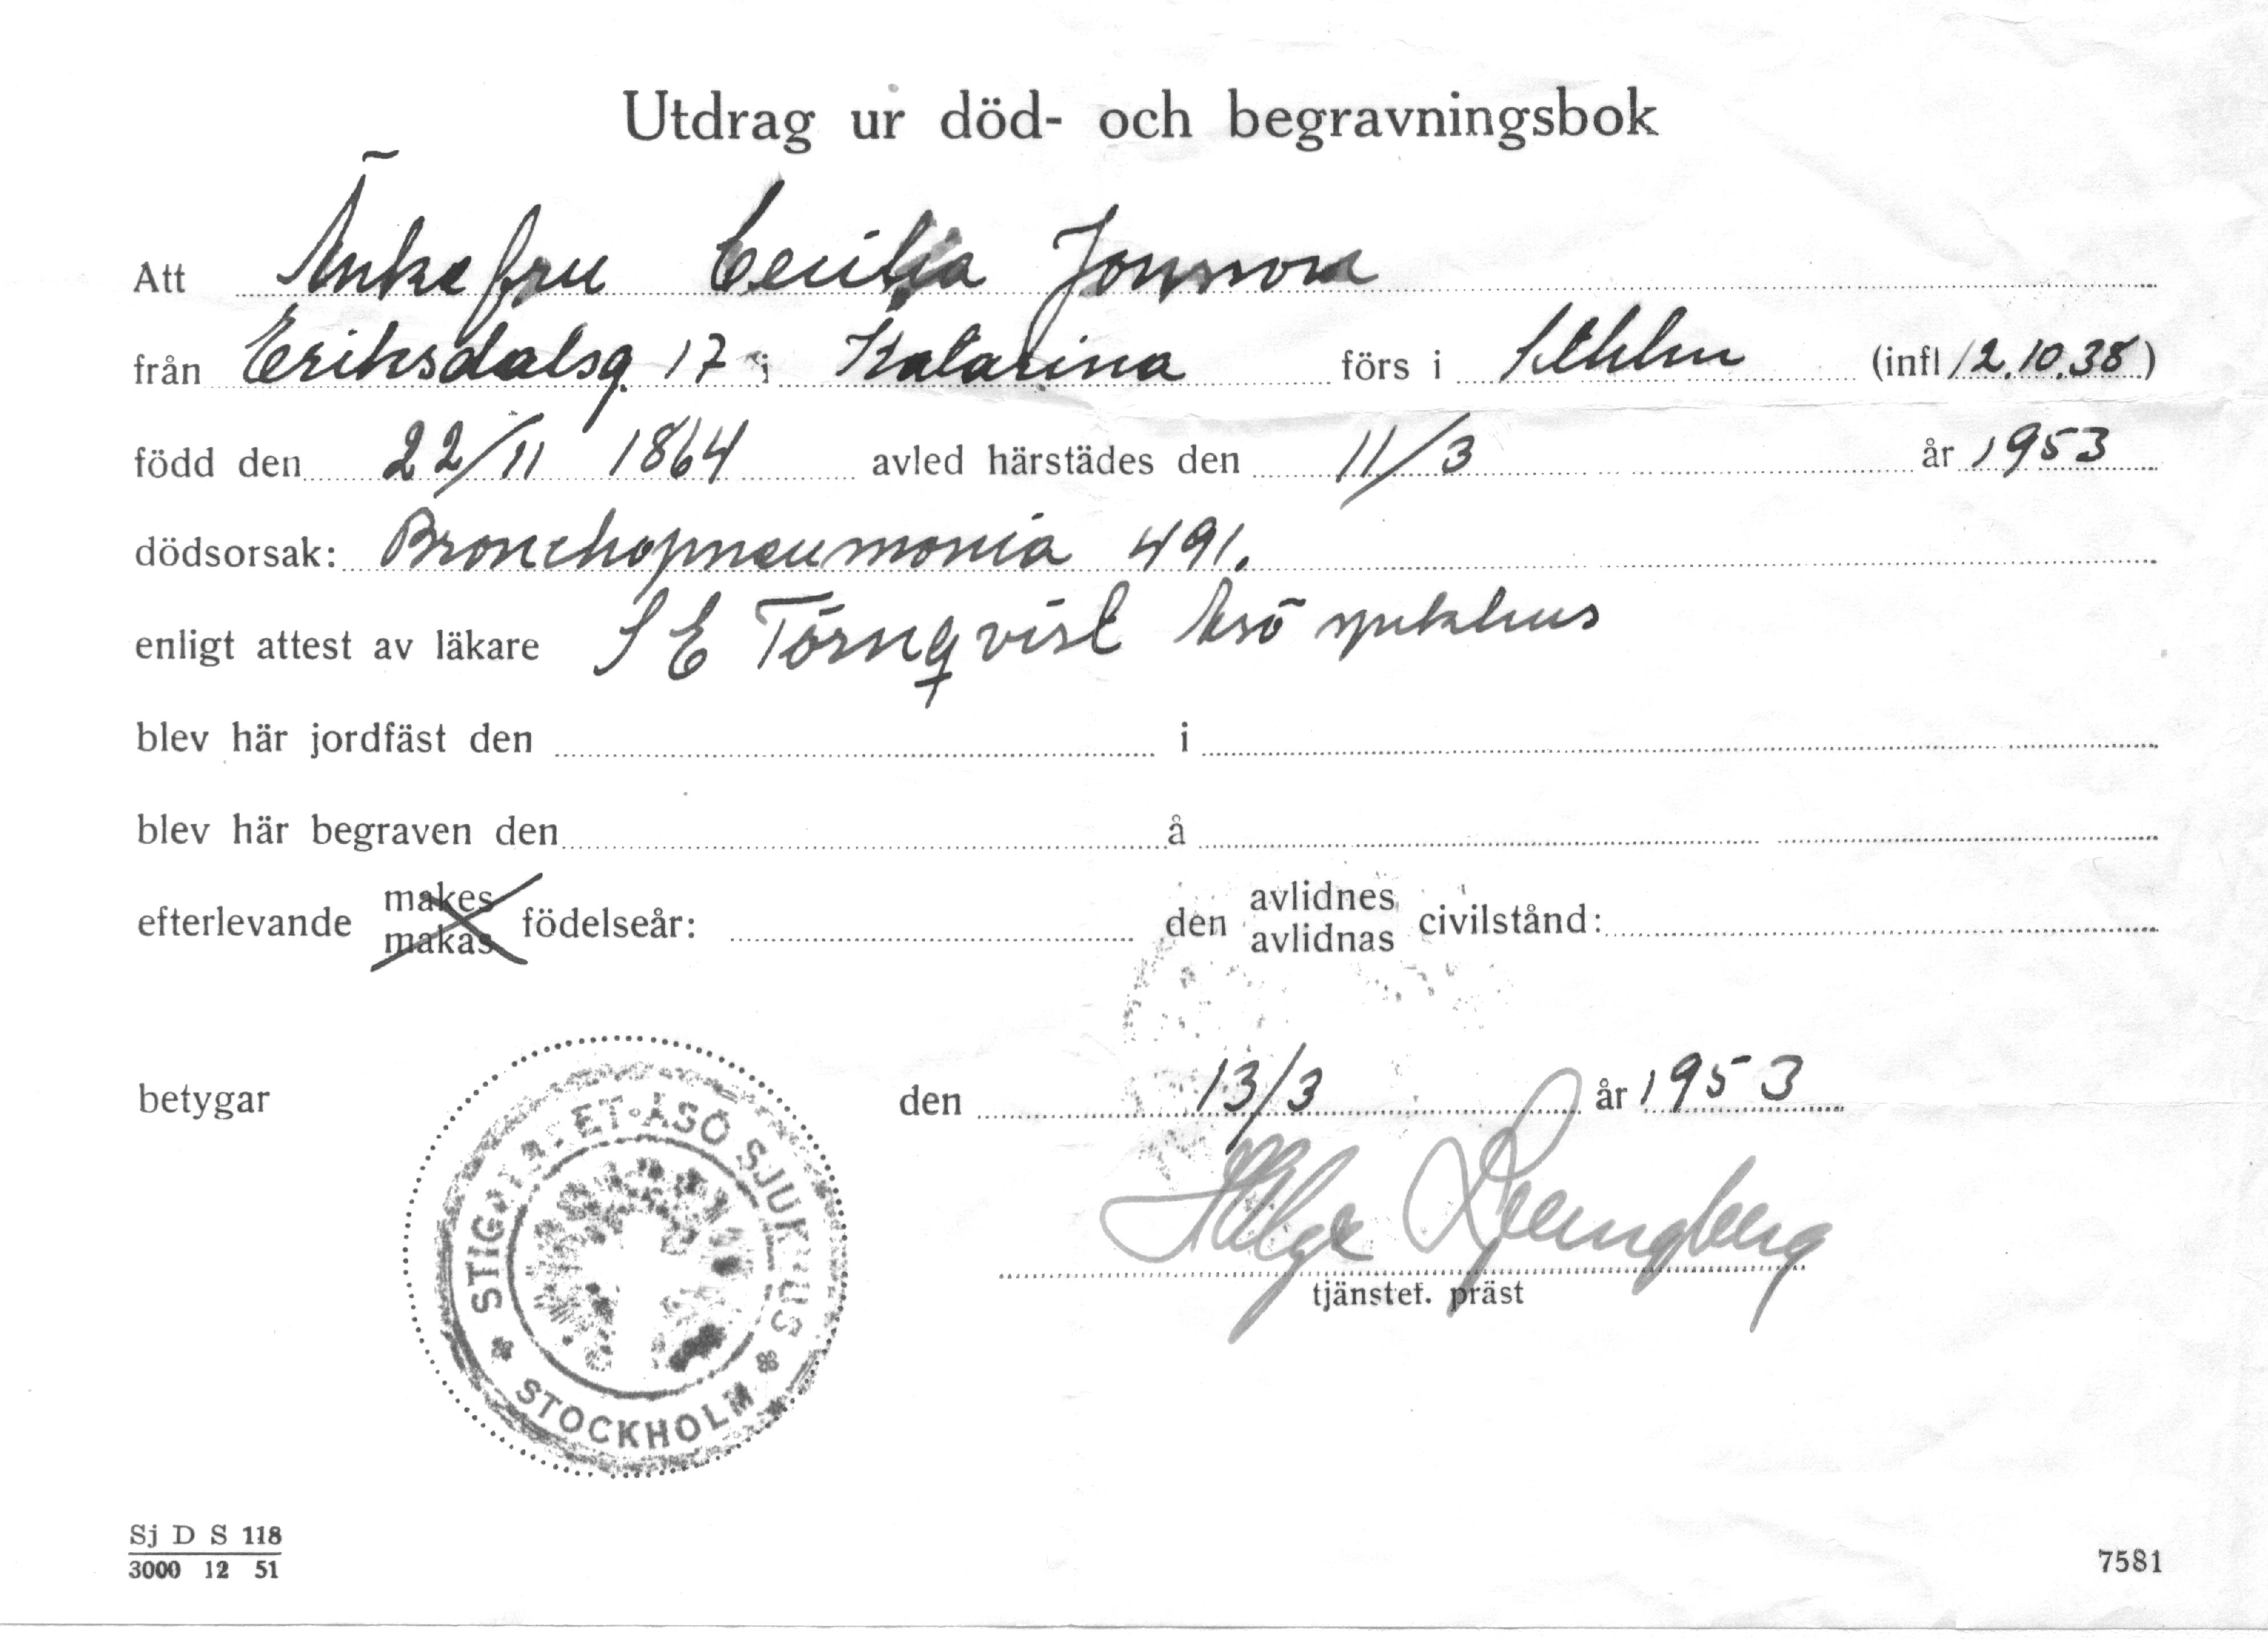 Utdrag ur död- och begravningsbok
Att Änkefru Cecilia Jonsson
från Eriksdalsg. 17 i Katarina förs i Sthlm (infl 12.10.38)
född den 22/11 1864 avled härstädes den 11/3 år 1953
dödsorsak: Bronchopneumonia 491.
enligt attest av läkare S E Törnqvist Åsö sjukhus
blev här jordfäst den i
blev här begraven den å
efterlevande makes makas födelseår: den avlidnes avlidnas civilstånd:
betygar den 13/3 år 1953
Helge Ljungberg
tjänstef. präst
ET ÅSÖ SJUKHUS
STOCKHOLM
Sj D S 118
3000 12 51
7581